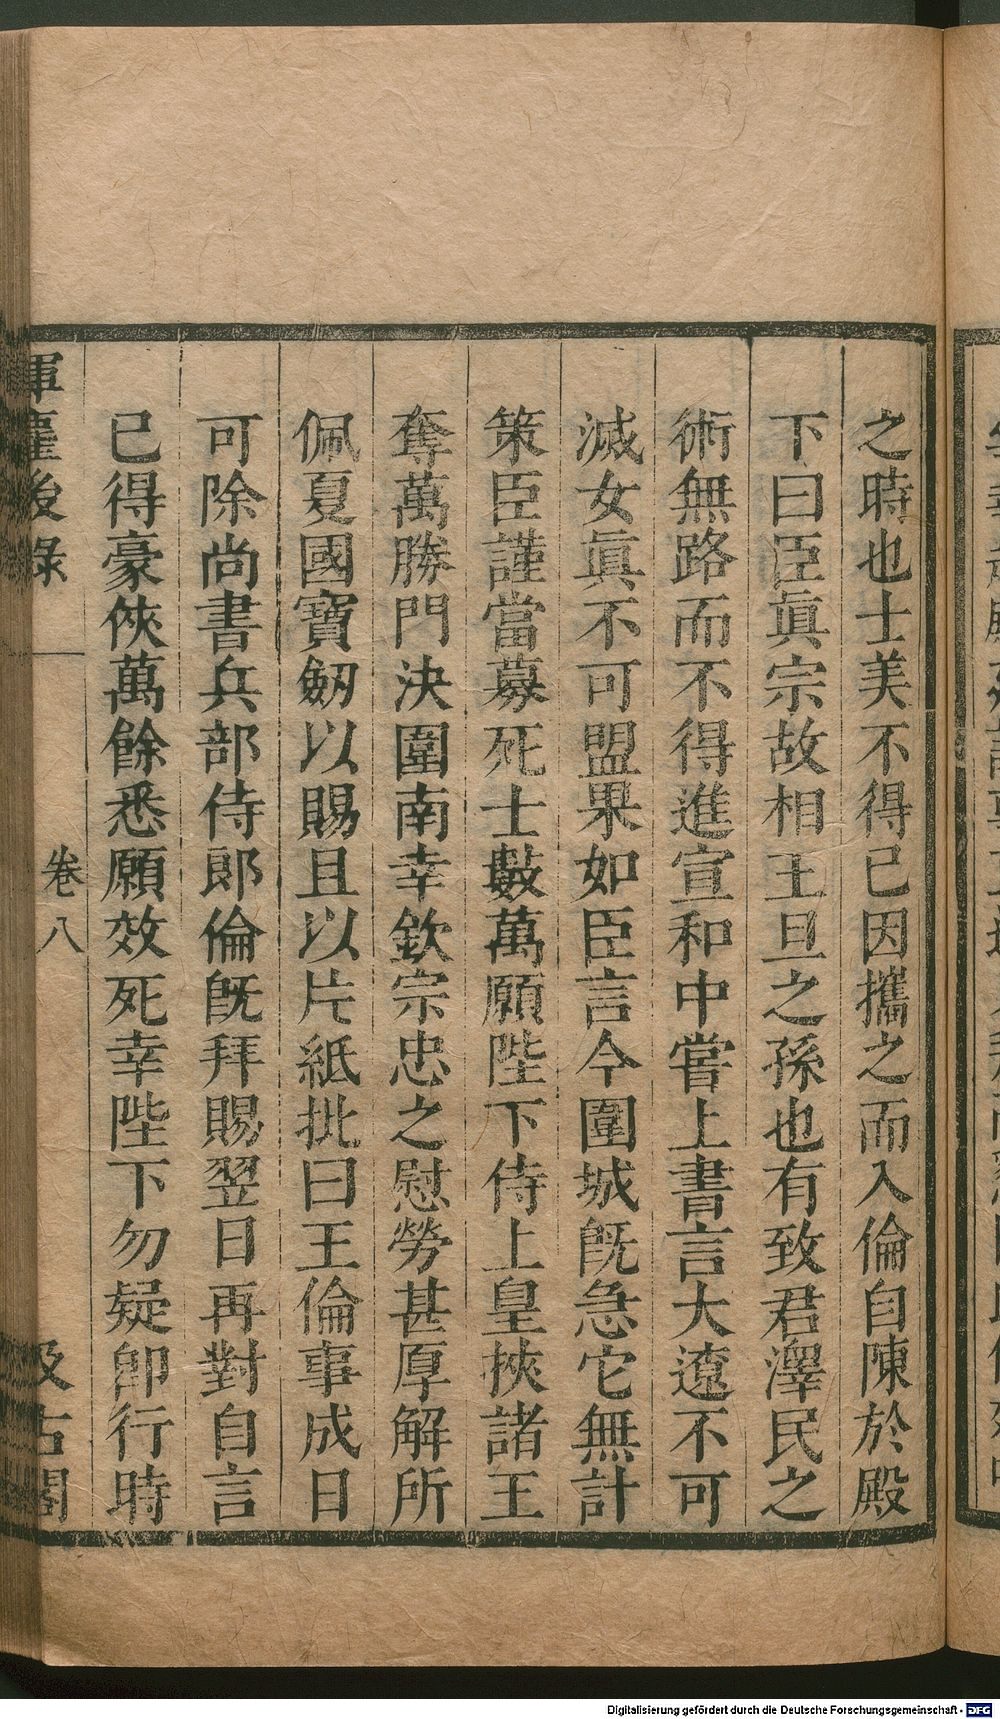 之時也士美不得已因攜之而入倫自陳於殿
下曰臣眞宗故相王旦之孫也有致君澤民之
術無路而不得進宣和中嘗上書言大遼不可
滅女眞不可盟果如臣言今圍城旣急它無計
策臣謹當募死士數萬願陛下侍上皇挾諸王
奪萬勝門決圍南幸欽宗忠之慰勞甚厚解所
佩夏國寶劒以賜且以片紙批曰王倫事成日
可除尚書兵部侍郎倫旣拜賜翌日再對自言
已得豪俠萬餘悉願效死幸陛下勿疑卽行時
揮麈後錄
卷八
汲古閣
Digitalisierung gefördert durch die Deutsche Forschungsgemeinschaft - DFG